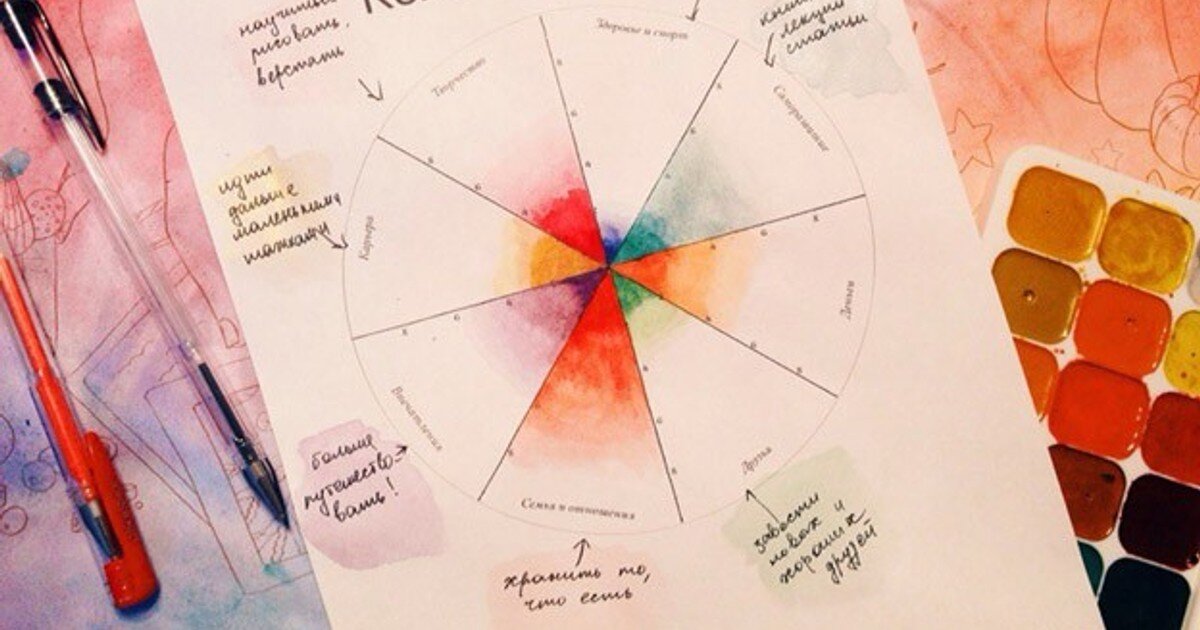 научиться
рисовать,
верстать
Здоровье и спорт
лекции
статьи
Творчество
Саморазвитие
идти
дальше
маленькими
шажками
Карьера
Деньги
Впечатления
больше
путешество-
вать!
Семья и отношения
Друзья
хранить то,
что есть
завести
новых и
хороших
друзей